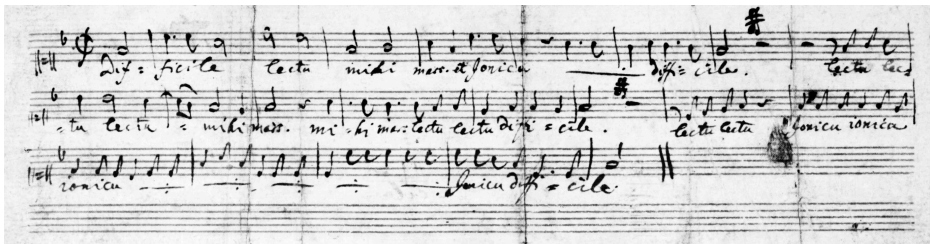 Dif = ficile lectu mihi mars. et Jonicu diffi = cile. lectu lec
= tu lectu = mihi mars. mi = hi mars lectu lectu difi = cile. lectu lectu Jonicu ionicu
ionicu Jonicu diffi = cile.